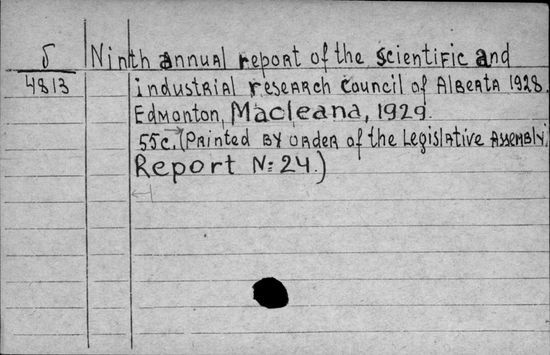 5 Ninth annual report of the scientific and
4813 industrial research council of Alberta 1928.
Edmonton, Macleana, 1929.
55c. (Printed by order of the Legislative Assembly.
Report №: 24.)